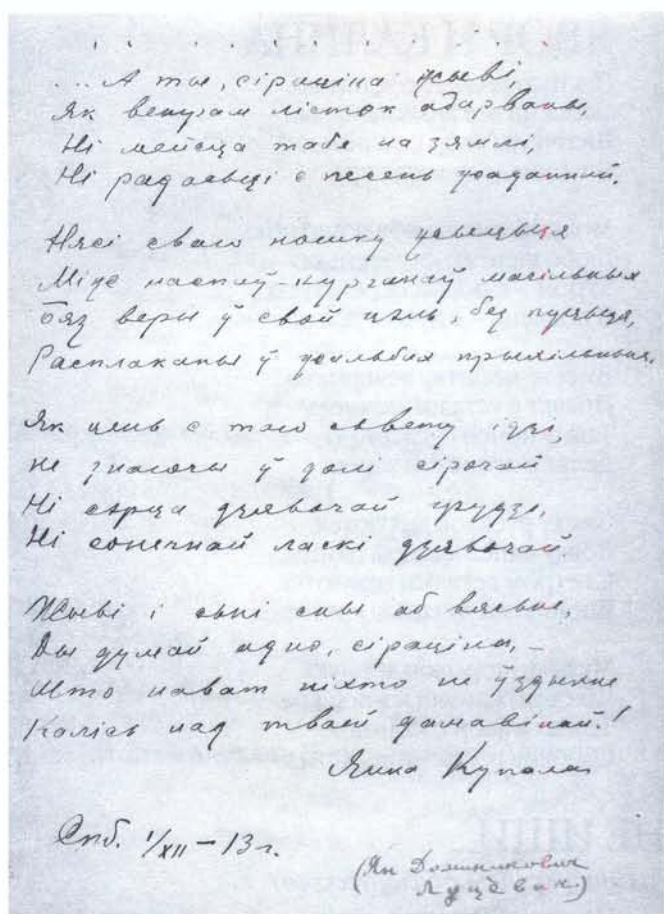 . . . . . . . . . .
...А ты, сіраціна жыві,
Як ветрам лісток адарваны,
Ні мейсца табе на зямлі,
Ні радасьці с песень
Нясі сваю ношку
Між настаў-курганаў магільных
Бяз веры ў свой цэль, без пуцьця,
Расплаканы ў прыхільных.
Як цень с таго сьвету ідзі,
Не знаючы ў долі сірочай
Ні сэрца дзявочай грудзі,
Ні сонечнай ласкі дзявочай
Жыві і сьні сны аб вясьне,
Ды думай адно, сіраціна, –
Што нават ніхто не ўздыхне
Калісь над твоей дамавінай!
Янка Купала
Спб. 1/XII – 13 г.
(Ян Доминикович
Луцевич)